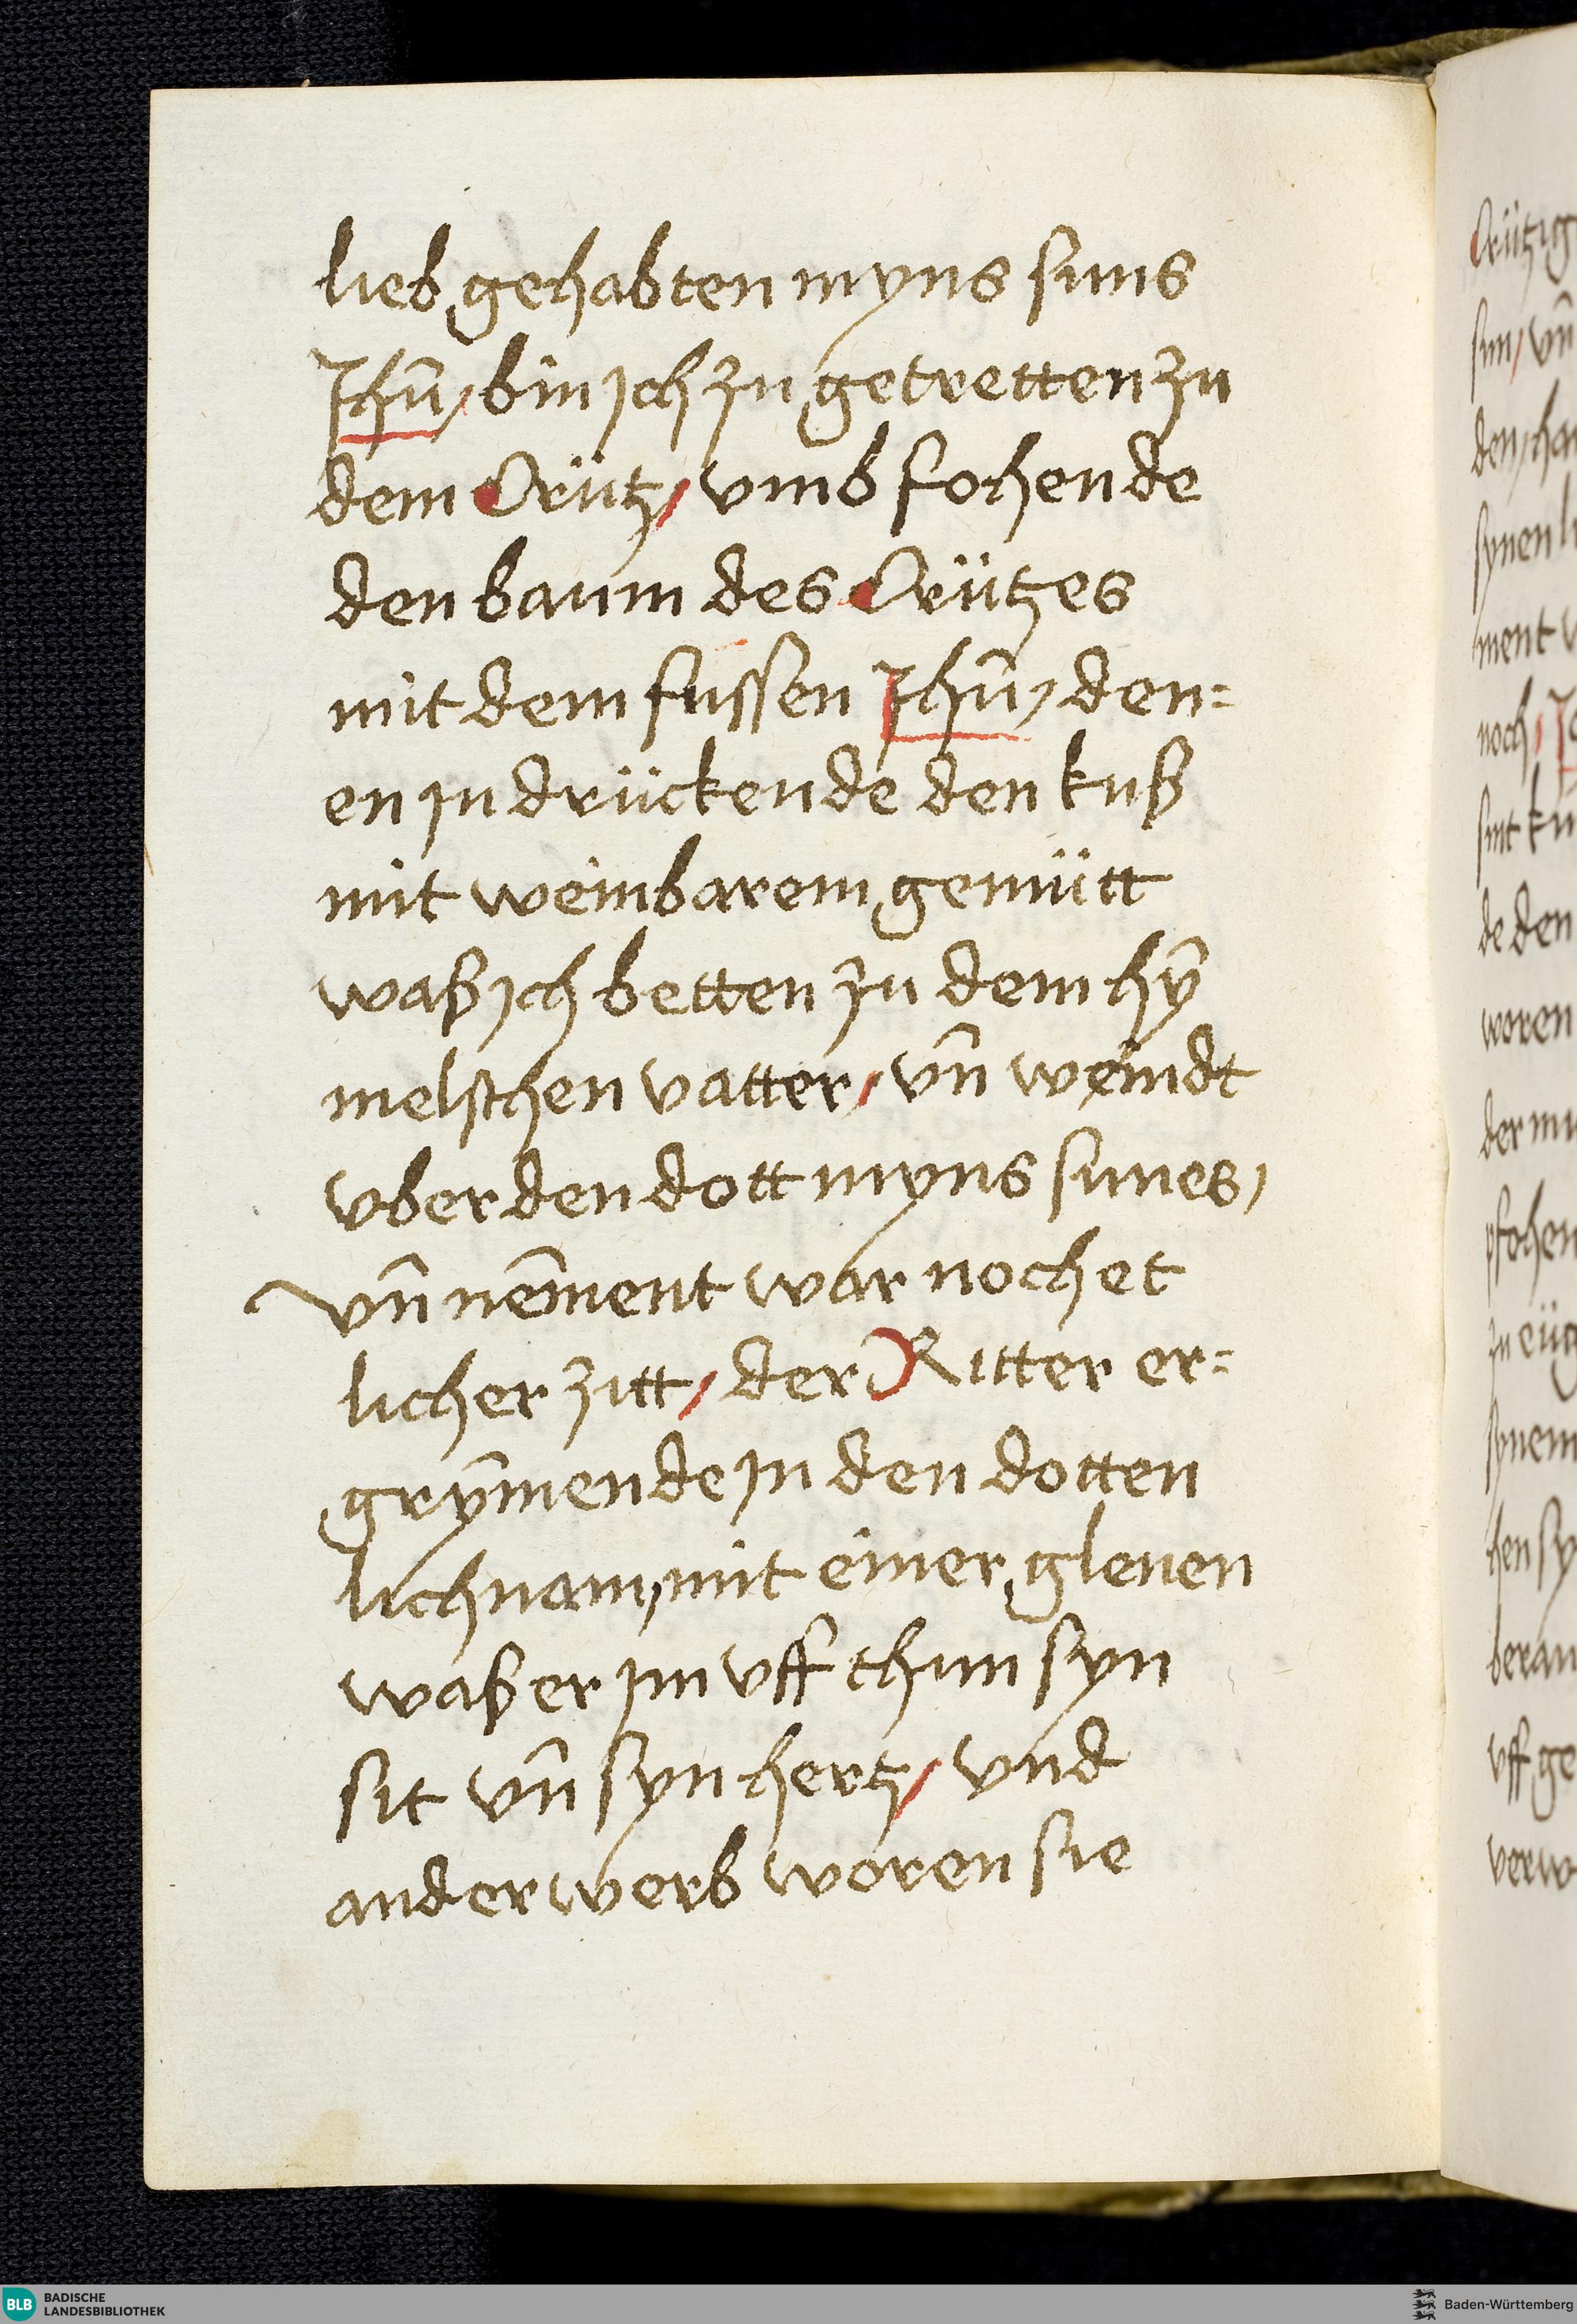 lieb gehabten myns suns
Jhū / bin jch zu getretten zu
dem Crütz / vmb fohende
den baum des Crützes
mit dem fussen Jhū / den=
en jn drückende den kuß
mit weinbarem gemütt
waß jch betten zu dem hȳ
melschen vatter / vn̄ weindt
vber den dott myns sunes /
vn̄ nem̄ent war noch et
licher zitt / der Ritter er=
grym̄ende jn den dotten
lichnam, mit einer gleuen
waß er jm vff thun syn
sit vn̄ syn hertz / vnd
anderwerb woren sie
Crützig
sun / vn̄
den / ha
synen l
ment v
noch / J
sint kü
de den
woren
der mu
pfohen
zu eüg
synem
hen sy
berau
vff ge
verw
BLB BADISCHE
LANDESBIBLIOTHEK
Baden-Württemberg